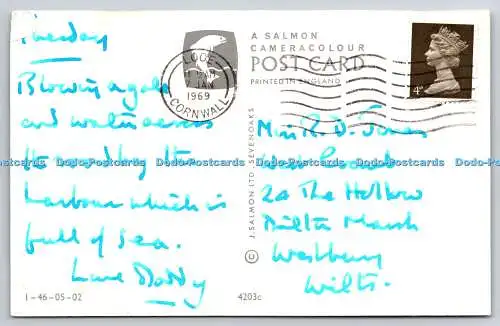 Tuesday
Blowing a gale
and water across
the road by the
harbour which is
full of sea.
Love Daddy
1-46-05-02
A SALMON
CAMERACOLOUR
POST CARD
PRINTED IN ENGLAND
LOOE
JAN
1969
CORNWALL
4D
J. SALMON LTD · SEVENOAKS
Miss R. D. Jones
2a The Hollow
Dilton Marsh
Westbury
Wilts.
4203c
Dodo-Postcards Dodo-Postcards Dodo-Postcards Dodo-Postcards Dodo-Postcards